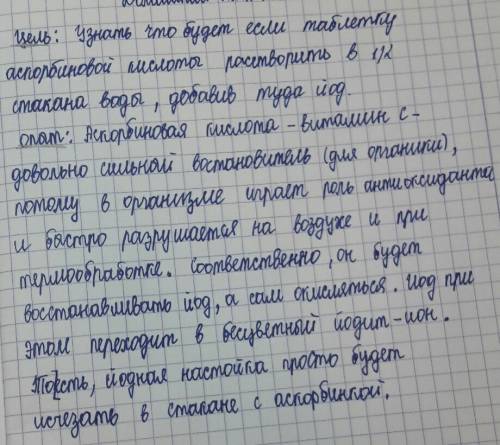 Цель: Узнать что будет если таблетку
аспорбиновой кислоты растворить в 1/2
стакана воды, добавив туда йод.
опыт: Аскорбиновая кислота - витамин с -
довольно сильный востановитель (для органики),
потому в организме играет роль антиоксиданта
и быстро разрушается на воздухе и при
термообработке. Соответственно, он будет
восстанавливать йод, а сам окисляться. Иод при
этом переходит в бесцветный йодит-ион.
Тоесть, йодная настойка просто будет
исчезать в стакане с аскорбинкой.